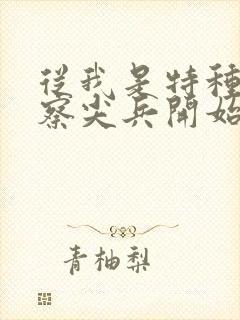 從我是特種
察尖兵開始
青柚梨